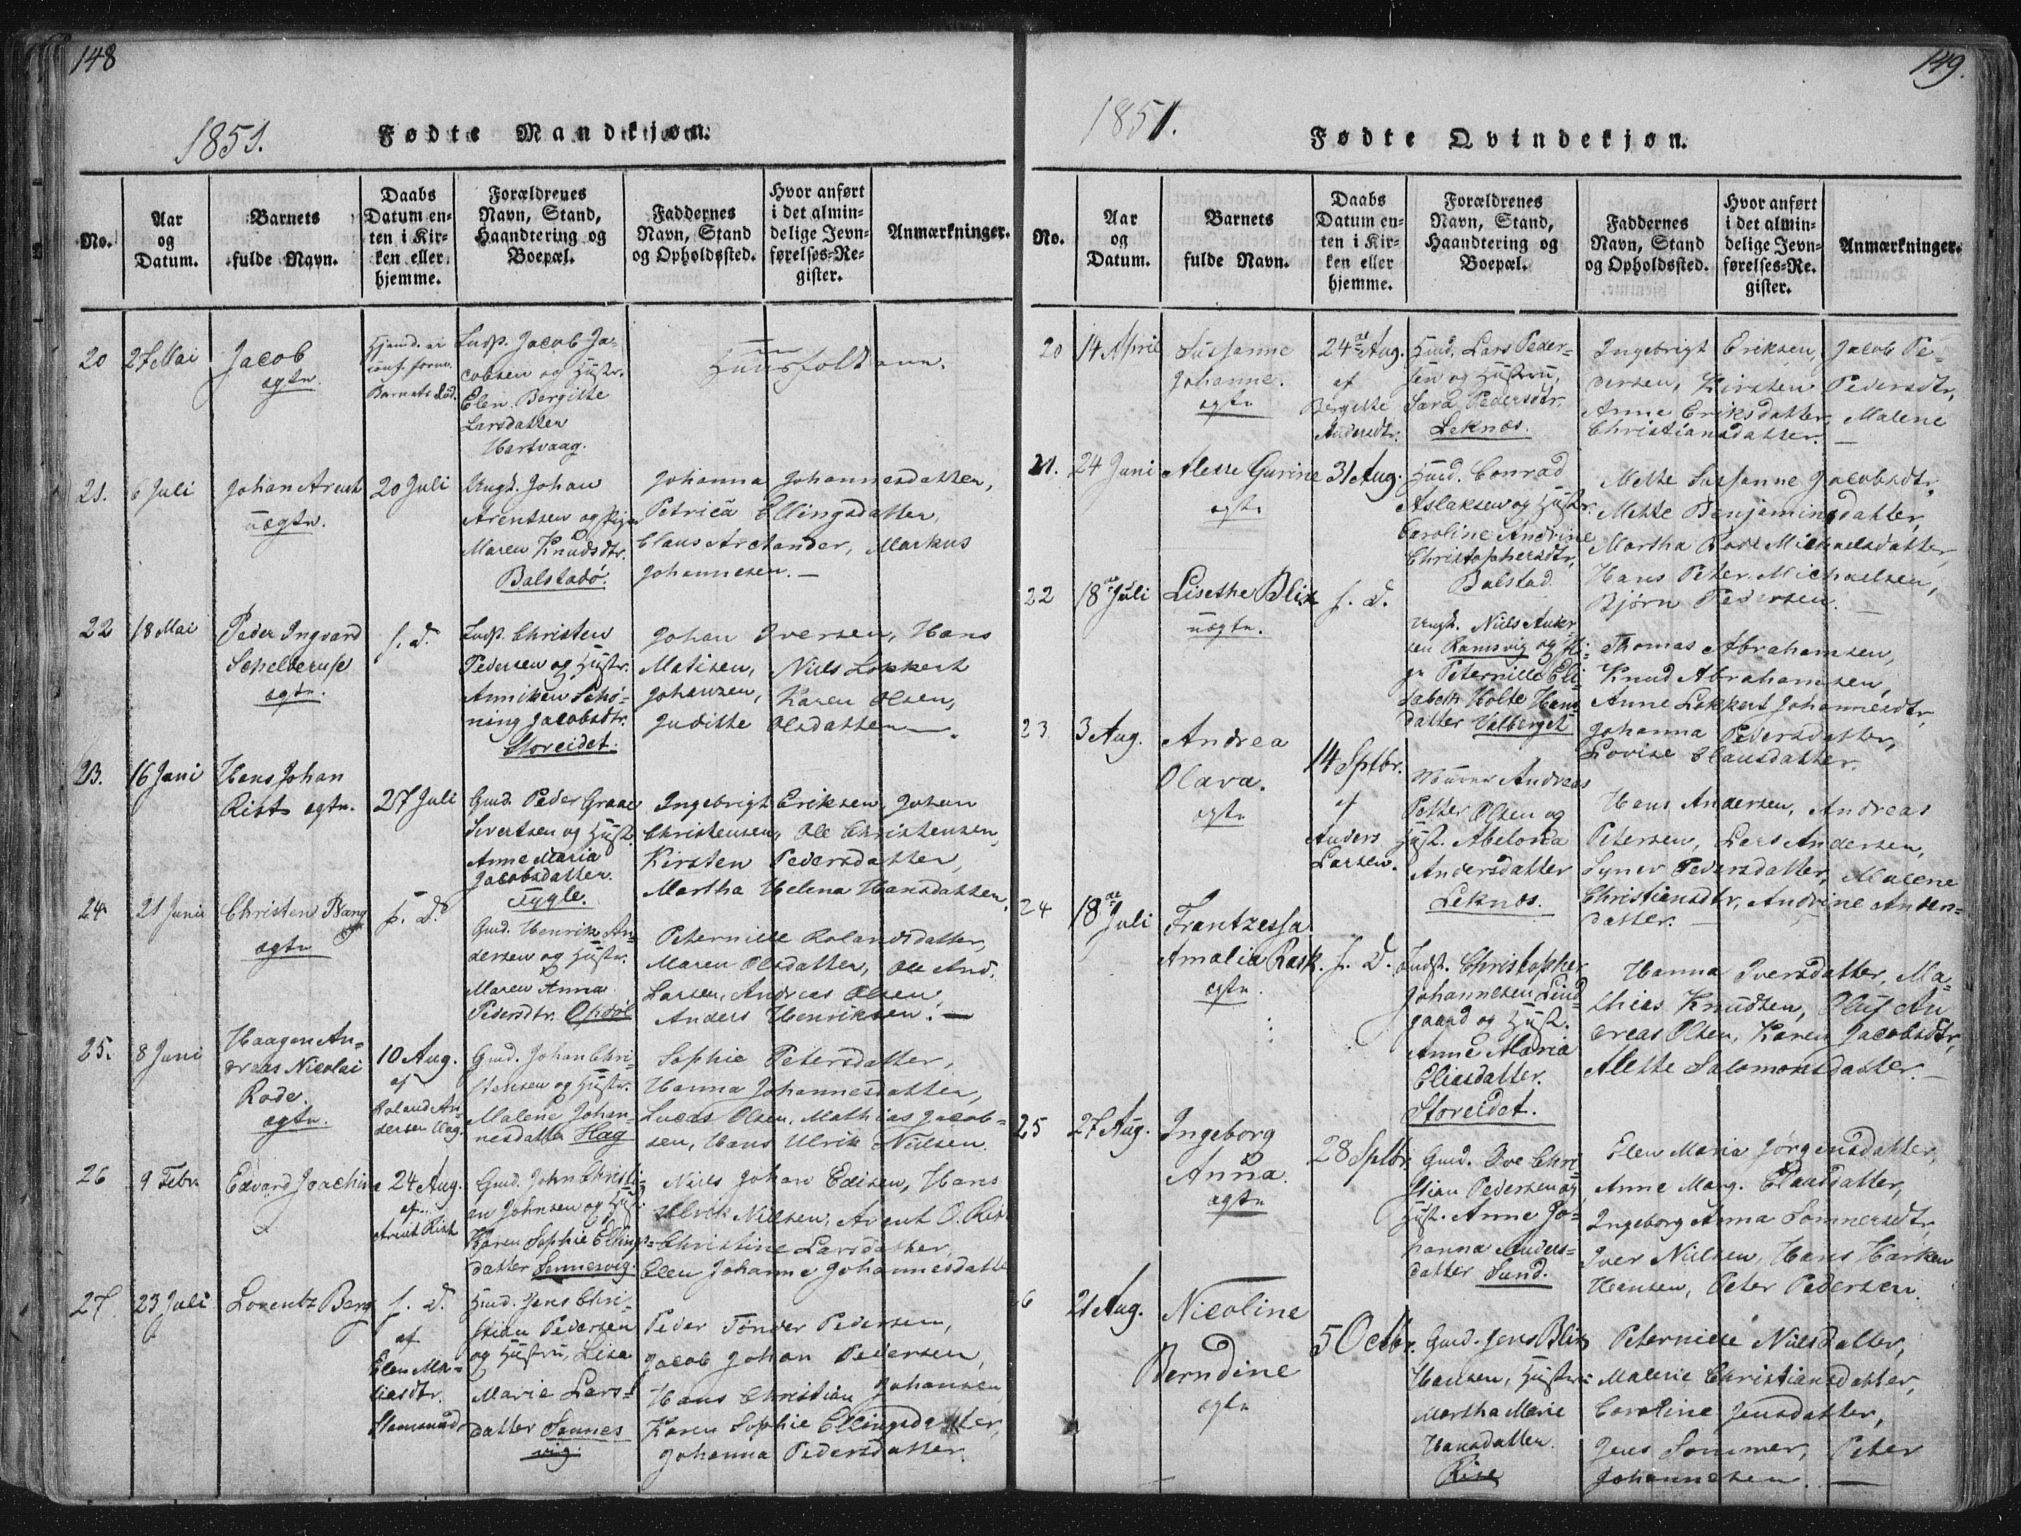 148
1851.
Fødte Mandkjøn.
No.
Aar
og
Datum.
Barnets
fulde Navn.
Daabs
Datum en-
ten i Kir-
ken eller
hjemme.
Forældrenes
Navn, Stand,
Haandtering og
Boepæl.
Faddernes
Navn, Stand
og Opholdssted.
Hvor anført
i det almin-
delige Jevn-
førelses-Re-
gister.
Anmærkninger.
20
27 Mai
Jacob
egte.
Barnets död.
Indst. Jacob Ja-
cobsen og Hustr.
Elen Bergitte
Larsdatter
Hartvaag.
Huusfolkene.
21.
6 Juli
Johan Arent
uegte.
20 Juli
Ungk. Johan
Arentsen og Pige
Maren Knudsdtr.
Balstadö.
Johanna Johannesdatter,
Petrica Ellingsdatter,
Claus Arctander, Markus
Johannesen. —
22
18 Mai
Peder Ingvard
Schelderup
egte.
s. D.
Indst. Christen
Pedersen og Hustr.
Anniken Schö-
ning Jacobsdtr.
Storeidet.
Johan Iversen, Hans
Matisen, Niels Lökkert
Johansen, Karen Olsen,
Juditte Olsdatter —.
23.
16 Juni
Hans Johan
Rist egte.
27 Juli
Gmd. Peder Graae
Sivertsen og Hust.
Anne Maria
Jacobsdatter.
Fygle.
Ingebrigt Eriksen, Johan
Christensen, Ole Christensen,
Kirsten Pedersdatter,
Martha Helena Hansdatter.
24
21 Juni
Christen Bang
egte
s. D.
Gmd. Henrik An-
dersen og Hustr.
Maren Anna
Pedersdtr. Opdöl
Peternille Rolandsdatter,
Maren Olsdatter, Ole And.
Larsen, Andreas Olsen,
Anders Henriksen. —
25.
8 Juni
Haagen An-
dreas Nicolai
Rode.
egte.
10 Aug.
af
Roland An-
dersen Hag.
Gmd. Johan Chri-
stensen og Hustr.
Malene Johan-
nesdatter Hag
Sophie Petersdatter,
Hanna Johannesdatter,
Lucas Olsen, Mathias Jacob-
sen, Hans Ulrik Nilsen.
26
9 Febr.
Edvard Joachim
24 Aug.
af
Arent Rist
Gmd. John Christi-
an Johnsen og Hust.
Karen Sophie Ellings-
datter Sennesvig.
Niels Johan Edisen, Hans
Ulrik Nilsen, Arent O. Rist
Christine Larsdatter,
Elen Johanne Johannesdatter
27.
23 Juli
Lorentz Berg
s. D.
af
Elen Ma-
Stamsund
Hmd. Jens Chri-
stian Pedersen
og Hustru, Lise
Marie Lars-
datter Sennes
vig.
Peder Tönder Pedersen,
Jacob Johan Pedersen,
Hans Christian Johansen,
Karen Sophie Ellingsdatter,
Johanna Pedersdatter.
149.
1851.
Fødte Qvindekjøn.
No.
Aar
og
Datum.
Barnets
fulde Navn.
Daabs
Datum en-
ten i Kir-
ken eller
hjemme.
Forældrenes
Navn, Stand,
Haandtering og
Boepæl.
Faddernes
Navn, Stand
og Opholdssted.
Hvor anført
i det almin-
delige Jevn-
førelses-Re-
gister.
Anmærkninger.
20
14 April
Susanne
Johanne.
egte
24de Aug.
af
Bergitte
Andersdtr.
Hmd. Lars Peder-
sen og Hustru,
Sara Pedersdtr.
Leknes.
Ingebrigt Eriksen, Jacob Pe-
dersen, Kirsten Pedersdtr,
Anne Eriksdatter, Malene
Christiansdatter. —
21.
24 Juni
Alette Gurine
egte
31 Aug.
Hmd. Conrad
Aslaksen og Hustr.
Caroline Andrine
Christophersdtr,
Balstad
Mette Susanne Jacobsdtr,
Mette Benjaminsdatter,
Martha Bore Michaelsdatter,
Hans Peter Michaelsen,
Björn Pedersen. —
22
18de Juli
Lisethe Blix
uegte.
s. D.
Ungk. Niels Anker-
sen Ramsvig og Pi-
ge Peternille Eli-
sabeth Holte Hans
datter Valberget
Thomas Abrahamsen,
Knud Abrahamsen,
Anne Lökkert Johannesdtr,
Johanna Pedersdatter,
Lovise Clausdatter.
23.
3 Aug.
Andrea
Olava.
egte
14 Sptbr.
af
Anders
Larsen.
Andreas
Petter Olsen og
Hust. Abelona
Andersdatter
Leknes.
Hans Andersen, Andreas
Petersen, Lars Andersen,
Syner Pedersdatter, Malene
Christiansdtr, Andrine Anders-
datter. —
24
18de Juli
Frantzessa
Amalia Rask.
egte.
s. D.
Indst. Christopher
Johannesen Lind-
gaard og Hust.
Anne Maria
Eliasdatter.
Storeidet.
Hanna Iversdatter, Ma-
thias Knudsen, Oluf An
dreas Olsen, Karen Jacobsdtr,
Alette Salomonsdatter. —
25
27 Aug.
Ingeborg
Anna.
egte
28 Sptbr.
Gmd. Ove Chri-
stian Pedersen og
Hust. Anne Jo-
hanna Anders-
datter Sund.
Elen Maria Jörgensdatter,
Anne Marg. Clausdatter,
Ingeborg Anna Sommersdtr,
Iver Nielsen, Hans Harken
Hansen, Peter Pedersen.
6
21 Aug.
Nicoline
Berndine
egte
5 Octbr.
Gmd. Jens Blix
Hansen, Hustr:
Martha Marie
Hansdatter.
Rise
Peternille Nilsdatter,
Malene Christiansdatter,
Caroline Jensdatter,
Jens Sommer, Peter
Johannesen. —